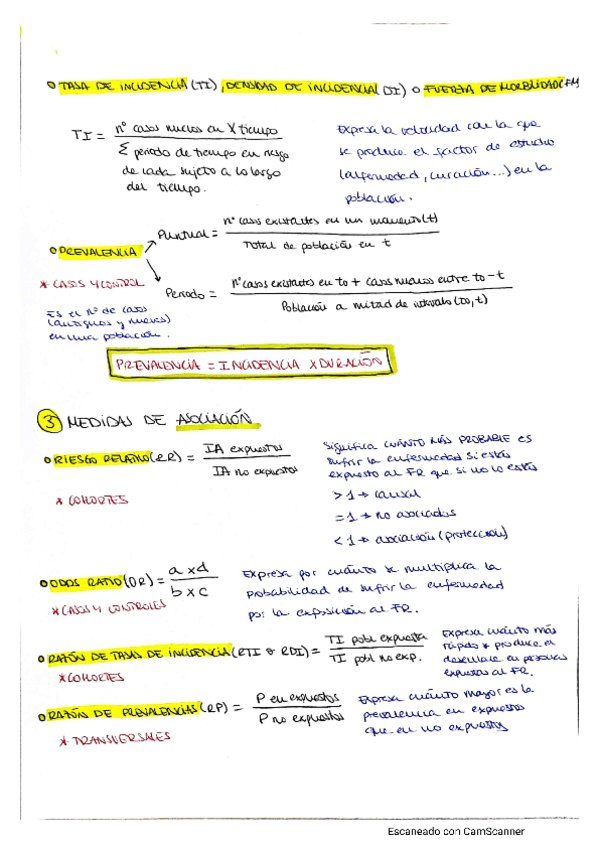 o TASA DE INCIDENCIA (TI), DENSIDAD DE INCIDENCIA (DI) O FUERZA DE MORBILIDAD (FM)
TI = nº casos nuevos en X tiempo
Σ periodo de tiempo en riesgo
de cada sujeto a lo largo
del tiempo.
Expresa la velocidad con la que
se produce el factor de estudio
(enfermedad, curación...) en la
población.
o PREVALENCIA
Puntual = nº casos existentes en un momento (t)
Total de población en t
* CASOS Y CONTROL
Periodo = nº casos existentes en t0 + casos nuevos entre t0 - t
Población a mitad de intervalo (t0, t)
Es el nº de casos
(antiguos y nuevos)
en una población.
PREVALENCIA = INCIDENCIA X DURACIÓN
3 MEDIDAS DE ASOCIACIÓN
o RIESGO RELATIVO (RR) = IA expuestos
IA no expuestos
* COHORTES
Significa CUÁNTO MÁS PROBABLE es
sufrir la enfermedad si estás
expuesto al FR que si no lo estás
> 1 → causal
= 1 → no asociados
< 1 → asociación (protección)
o ODDS RATIO (OR) = a x d
b x c
* CASOS Y CONTROLES
Expresa por cuánto se multiplica la
probabilidad de sufrir la enfermedad
por la exposición al FR.
o RAZÓN DE TASAS DE INCIDENCIA (RTI o RDI) = TI pobl expuesta
TI pobl no exp.
* COHORTES
Expresa cuánto más
rápido se produce el
desenlace en personas
expuestas al FR.
o RAZÓN DE PREVALENCIAS (RP) = P en expuestos
P no expuestos
* TRANSVERSALES
Expresa cuánto mayor es la
prevalencia en expuestos
que en no expuestos
Escaneado con CamScanner